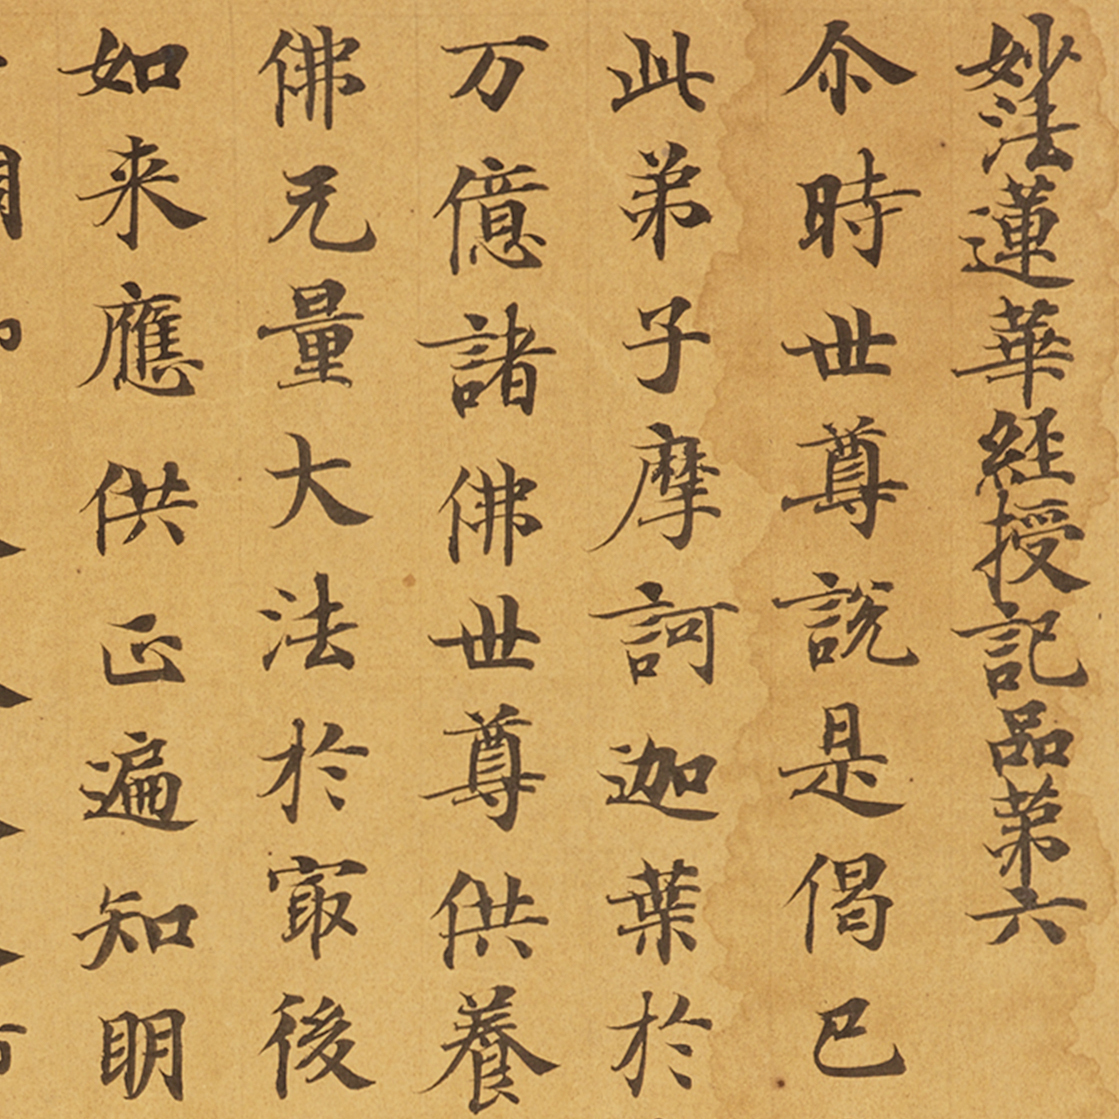 妙法蓮華経授記品第六
尒時世尊說是偈已
此弟子摩訶迦葉於
万億諸佛世尊供養
佛无量大法於㝡後
如来應供正遍知明